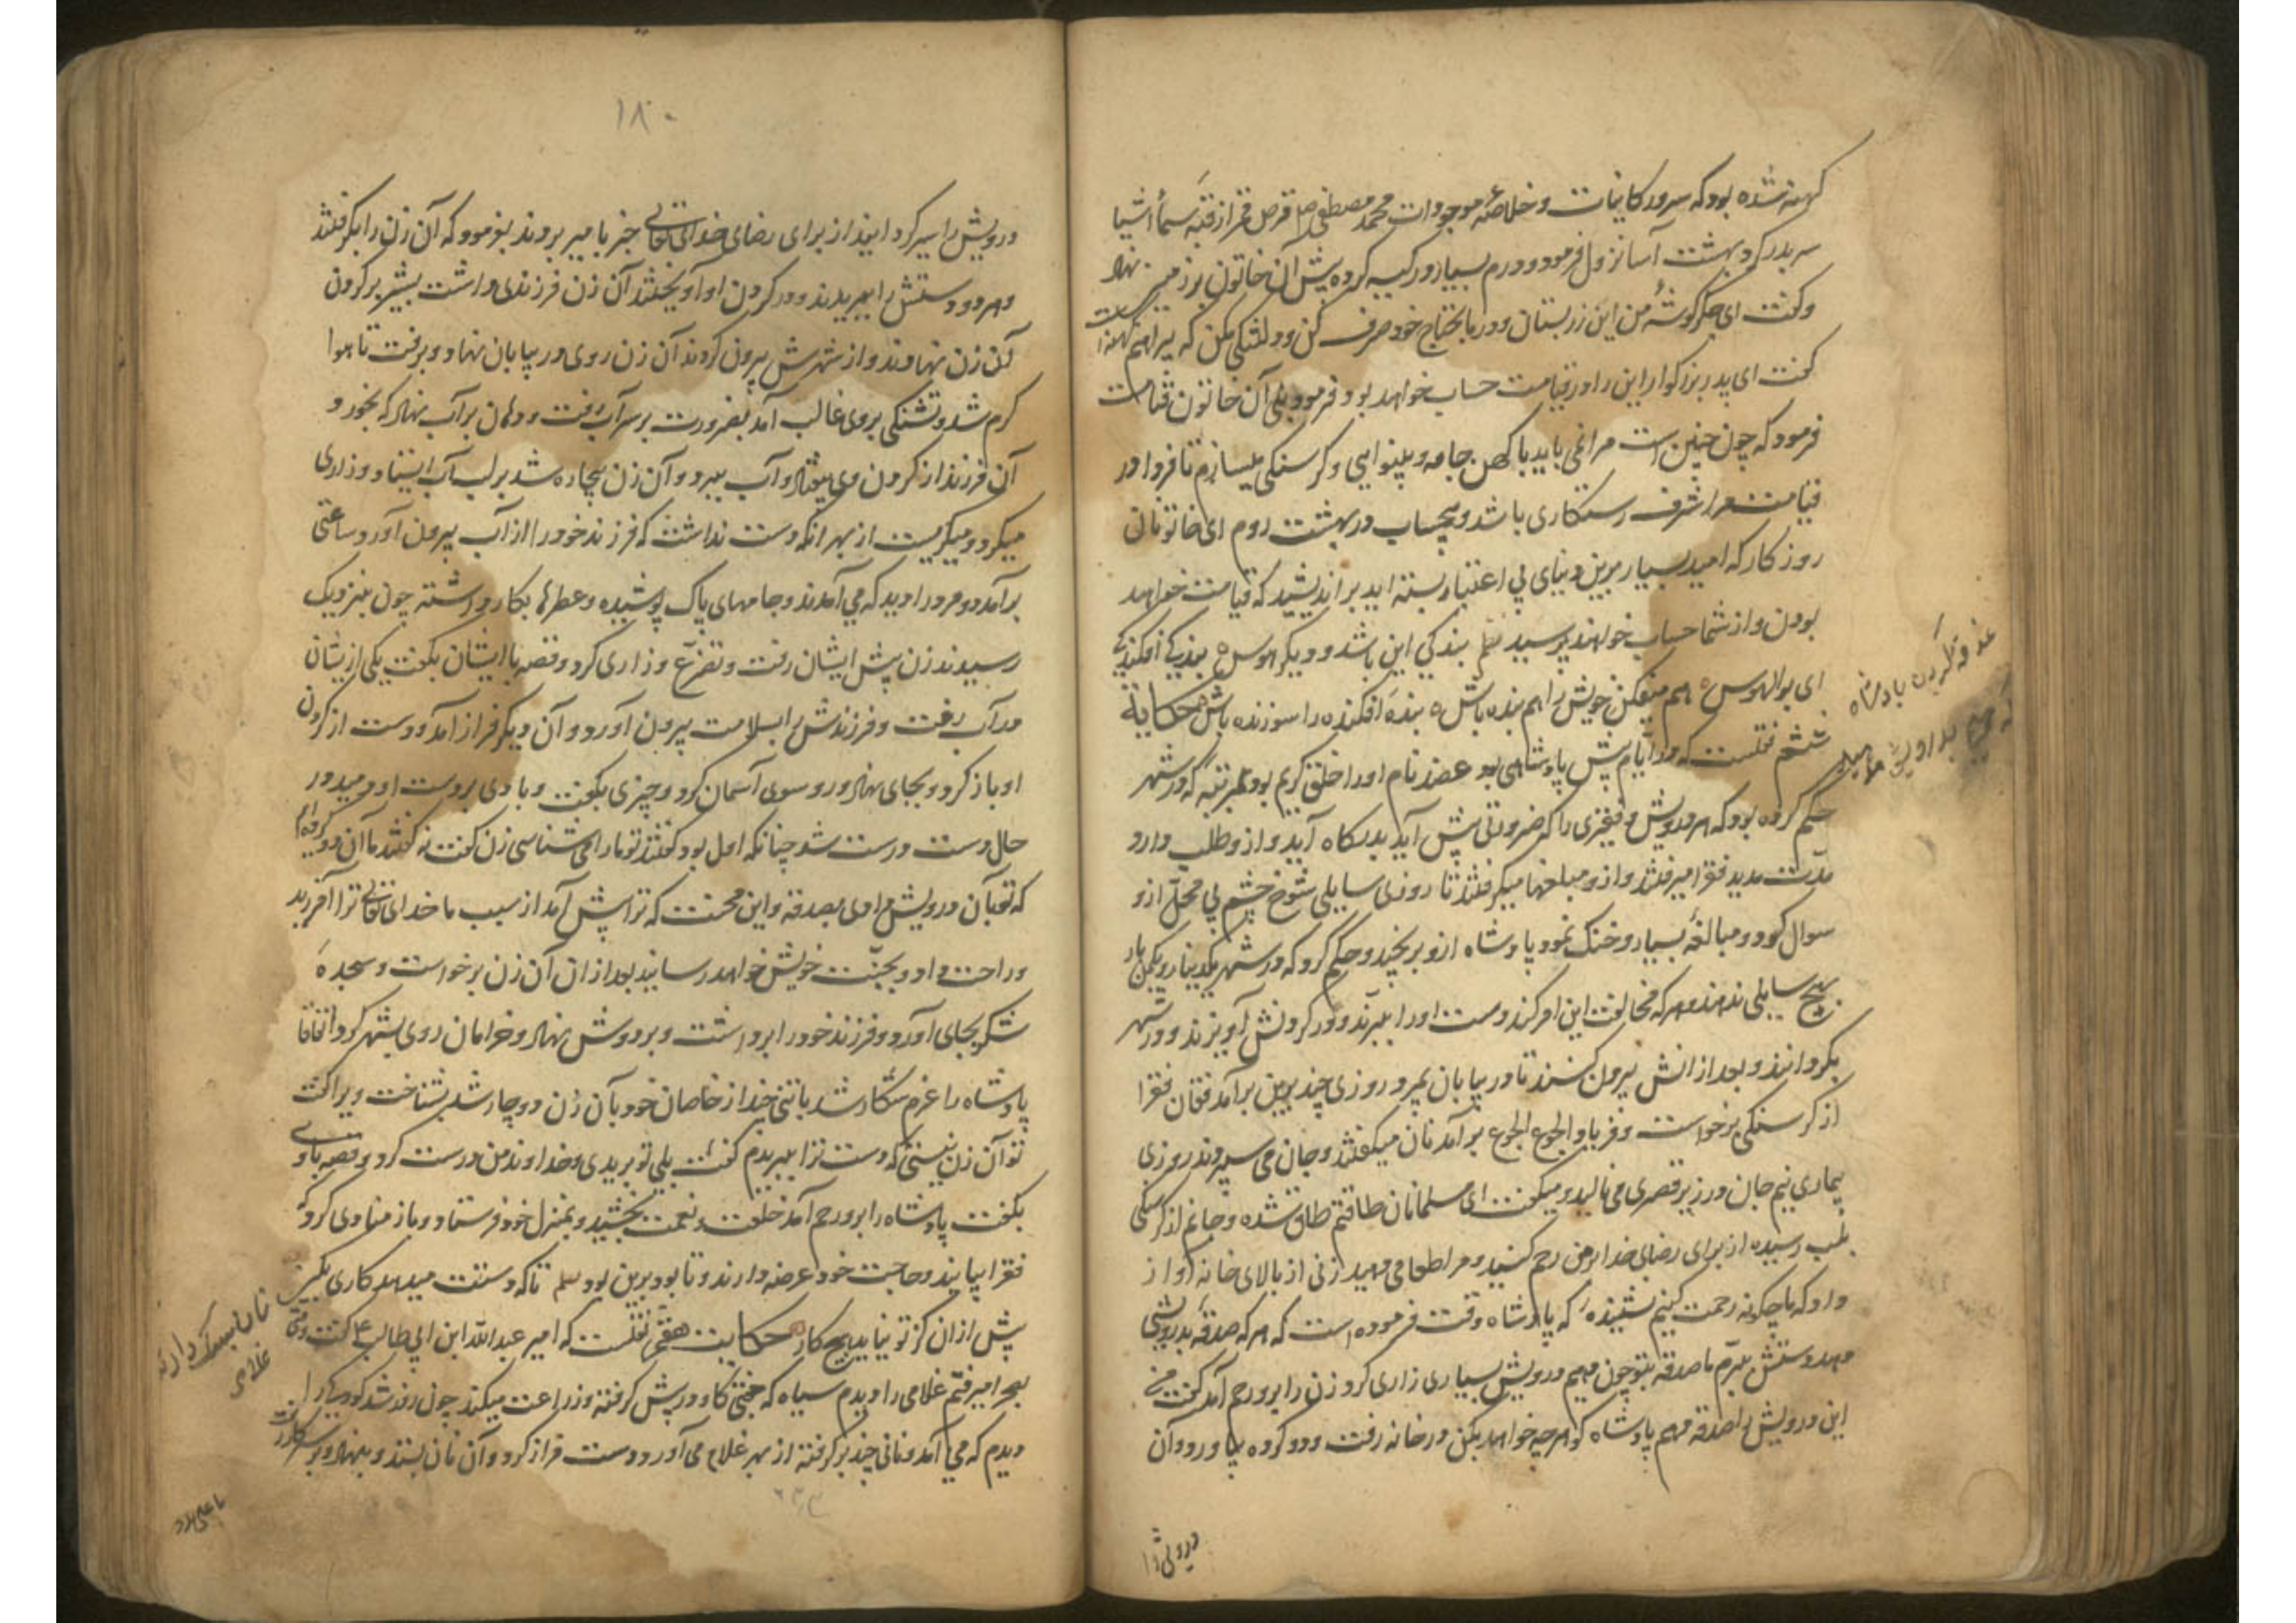 کهنه شده بود که سرور کاینات و خلاصه موجودات محمد مصطفی ص قرص قمر از قبّه سما اشیا
سر بدر کرد بهشت آسا نزول فرمود و درم بسیار در کیسه کرده پیش آن خاتون بر زمین نهاد
و گفت ای جگرگوشهٔ من این زر بستان و در مایحتاج خود صرف کن و دلتنگی مکن که پیراهنم کهنه است
گفت ای پدر بزرگوار این را در قیامت حساب خواهد بود فرمود بلی آن خاتون قیامت
فرمود که چون چنین است مرا نمی باید با کهن جامه و بینوایی و گرسنگی میسازم تا فردا در
قیامت مرا شرف رستگاری باشد و بیحساب در بهشت روم ای خاتونان
روزکار که امید بسیار برین دنیای بی اعتبار بسته اید براندیشید که قیامت خواهد
بودن و از شما حساب خواهند پرسید نظم بندگی این باشد و دیگر هوس ه بندگی افکندگی
ای بوالهوس ه هم میفکن خویش را هم بنده باش ه بندهٔ افکنده را سوزنده باش حکایة
ششم نقلست که در ایام پیش پادشاهی بود عضد نام او را خلق کریم بود بمرتبه که در شهر
حکم کرده بود که هر درویش و فقیری را که ضرورتی پیش آید بدرگاه آید و ازو طلب دارد
مدّت مدید فقرا میرفتند و ازو مبلغها میگرفتند تا روزی سایلی شوخ چشم بی محل ازو
سوال کرد و مبالغه بسیار و خنک نمود پادشاه ازو برنجید و حکم کرد که در شهر یکدینار و یکمن بار
بهیچ سایلی ندهند و هر که مخالفت این امر کند دست او را ببرند و در گردنش آویزند و در شهر
بگردانند و بعد از انش بیرون کنند تا در بیابان بمیرد روزی چند برین برآمد فغان فقرا
از گرسنگی برخواست و فریاد الجوع الجوع برآمد نان میگفتند و جان می سپردند روزی
بیماری نیم جان در زیر قصری می نالید و میگفت ای مسلمانان طاقتم طاق شده و جانم از گرسنگی
بلب رسیده از برای رضای خدا بر من رحم کنید و مرا طعامی دهید زنی از بالای خانه آواز
داد که ما چگونه رحمت کنیم نشنیدهٔ که پادشاه وقت فرموده است که هر که صدقه بدرویشی
دهد دستش ببرّم ما صدقه بتو چون دهیم درویش بسیاری زاری کرد زن را برو رحم آمد گفت من
این درویش را صدقه دهم پادشاه گو هر چه خواهد بکن در خانه رفت و دو گرده بیاورد و آن
عضد پادشاه
درویش را
۱۸۰
درویش را سیر کرد ایند از برای رضای خدای تعالی خبر بامیر بردند بفرمود که آن زن را بگرفتند
و هر دو دستش را ببریدند و در گردن او آویختند آن زن فرزندی داشت بشیر بر گردن
آن زن نهادند و از شهرش بیرون کردند آن زن روی در بیابان نهاد و برفت تا هوا
گرم شد و تشنگی بر وی غالب آمد بضرورت بر سر آب رفت و دهان بر آب نهاد که بخورد و
آن فرزند از گردن وی بیفتاد و آب ببرد و آن زن بیچاره شد بر لب آب ایستاد و زاری
میکرد و میگریست از بهر انکه دست نداشت که فرزند خود را از آب بیرون آورد ساعتی
برآمد دو مرد را دید که می آمدند و جامهای پاک پوشیده و عطرها بکار داشته چون بنزدیک
رسیدند زن پیش ایشان رفت و تضرّع و زاری کرد و قصه با ایشان بگفت یکی ازیشان
در آب رفت و فرزندش را بسلامت بیرون آورد و آن دیگر فراز آمد و دست از گردن
او باز کرد و بجای نهاد و رو سوی آسمان کرد و چیزی بگفت و بادی بر دست او دمید در
حال دست درست شد چنانکه اول بود گفتند تو ما را می شناسی زن گفت نه گفتند ما آن دو گرده ایم
که تو بآن درویش دادی بصدقه و این محنت که ترا پیش آمد از سبب ما خدای تعالی ترا آفرید
و راحت داد و بجنّت خویش خواهد رسانید بعد از ان آن زن برخواست و سجدهٔ
شکر بجای آورد و فرزند خود را برداشت و بر دوش نهاد و خرامان روی بشهر کرد اتفاقا
پادشاه را عزم شکار شد با تنی چند از خاصان خود بآن زن دوچار شد بشناخت ویرا گفت
تو آن زن نیستی که دست ترا ببریدم گفت بلی تو بریدی و خداوند من درست کرد و قصه با وی
بگفت پادشاه را برو رحم آمد خلعت و نعمت بخشید و بمنزل خود فرستاد و باز منادی کرد که
فقرا بیایند و حاجت خود عرضه دارند و تا بود برین بود نظم تا که دستت میدهد کاری بگیر
پیش از ان کز تو نیاید هیچ کار حکایت هفتم نقلست که امیر عبدالله ابن ابی طالب ع گفت وقتی
بصحرا میرفتم غلامی را دیدم سیاه که جفتی گاو در پیش گرفته و زراعت میکند چون روز شد
دیدم که می آمد و نانی چند بر گرفته از بهر غلام می آورد دست فراز کرد و آن نان بستد و بنهاد و بر سر کار
نان بسگ دادن
غلامی